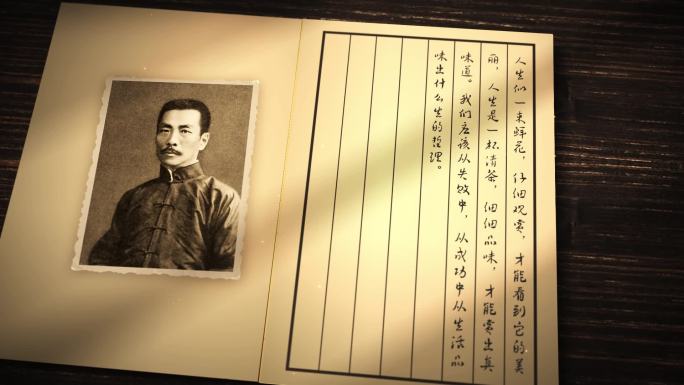 人生似一束鲜花，仔细观赏，才能看到它的美
丽，人生是一杯清茶，细细品味，才能赏出真
味道。我们应该从失败中，从成功中从生活品
味出什么生的哲理。